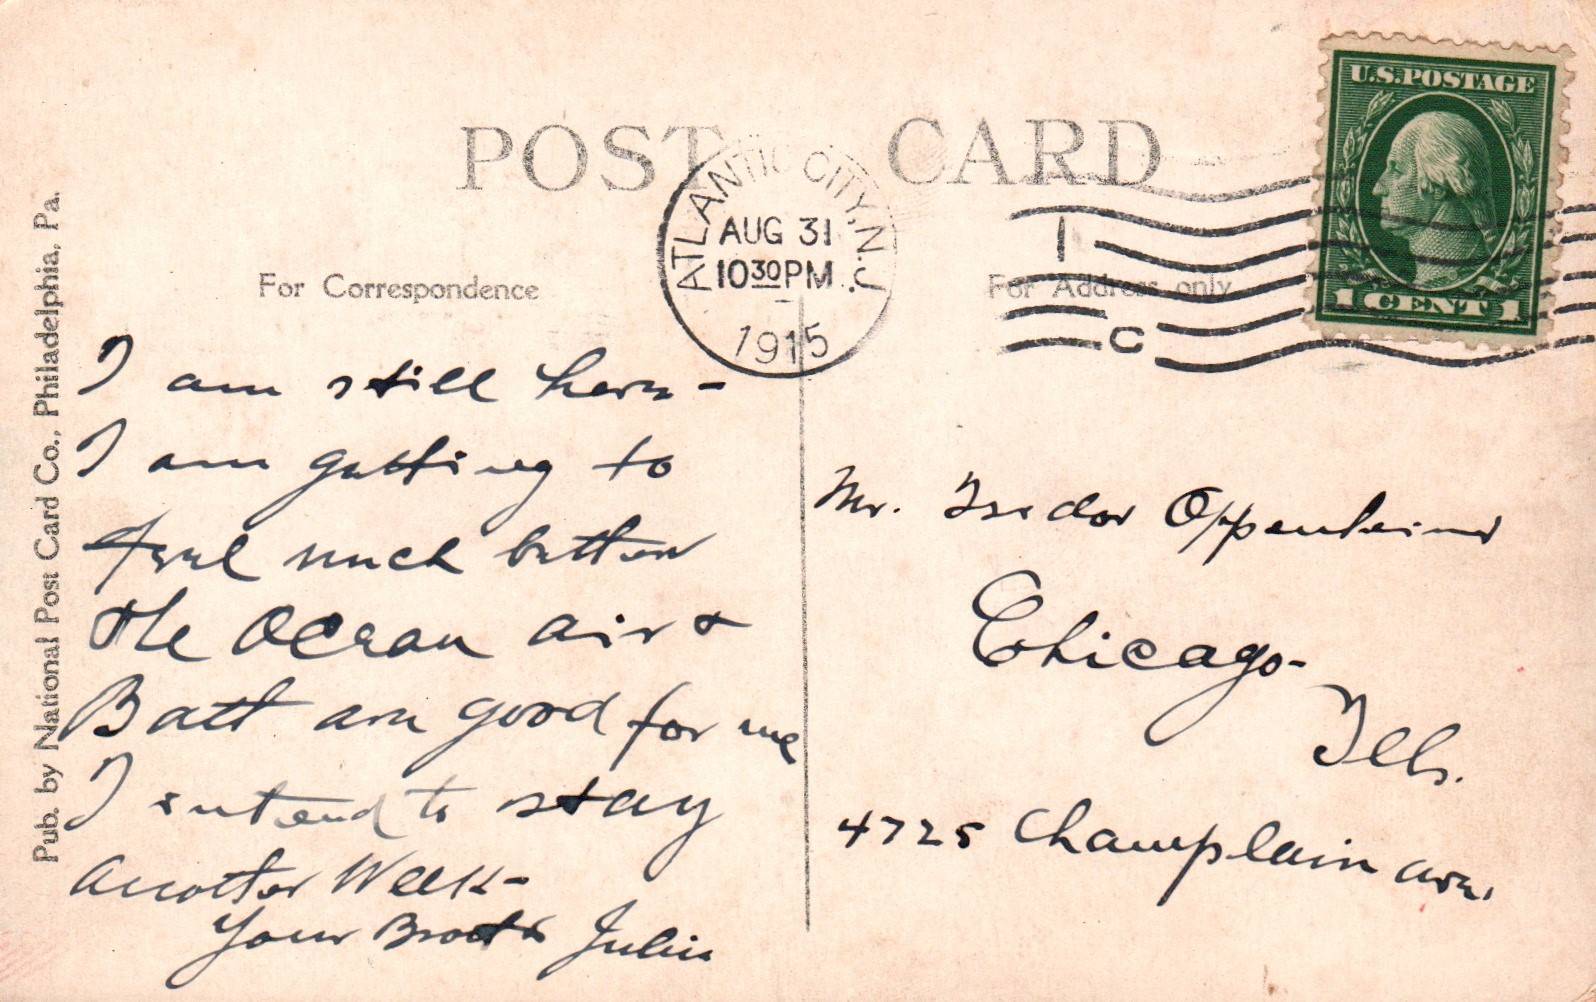 POST CARD
ATLANTIC CITY, N.J.
AUG 31
10 30 PM
1915
1
C
U.S. POSTAGE
1 CENT 1
For Correspondence
For Address only
Pub. by National Post Card Co., Philadelphia, Pa.
I am still here -
I am getting to
feel much better
the Ocean air &
Bath are good for me
I intend to stay
another Week -
Your Broth Julius
Mr. Isidor Oppenheimer
Chicago -
Ills.
4725 Champlain ave.